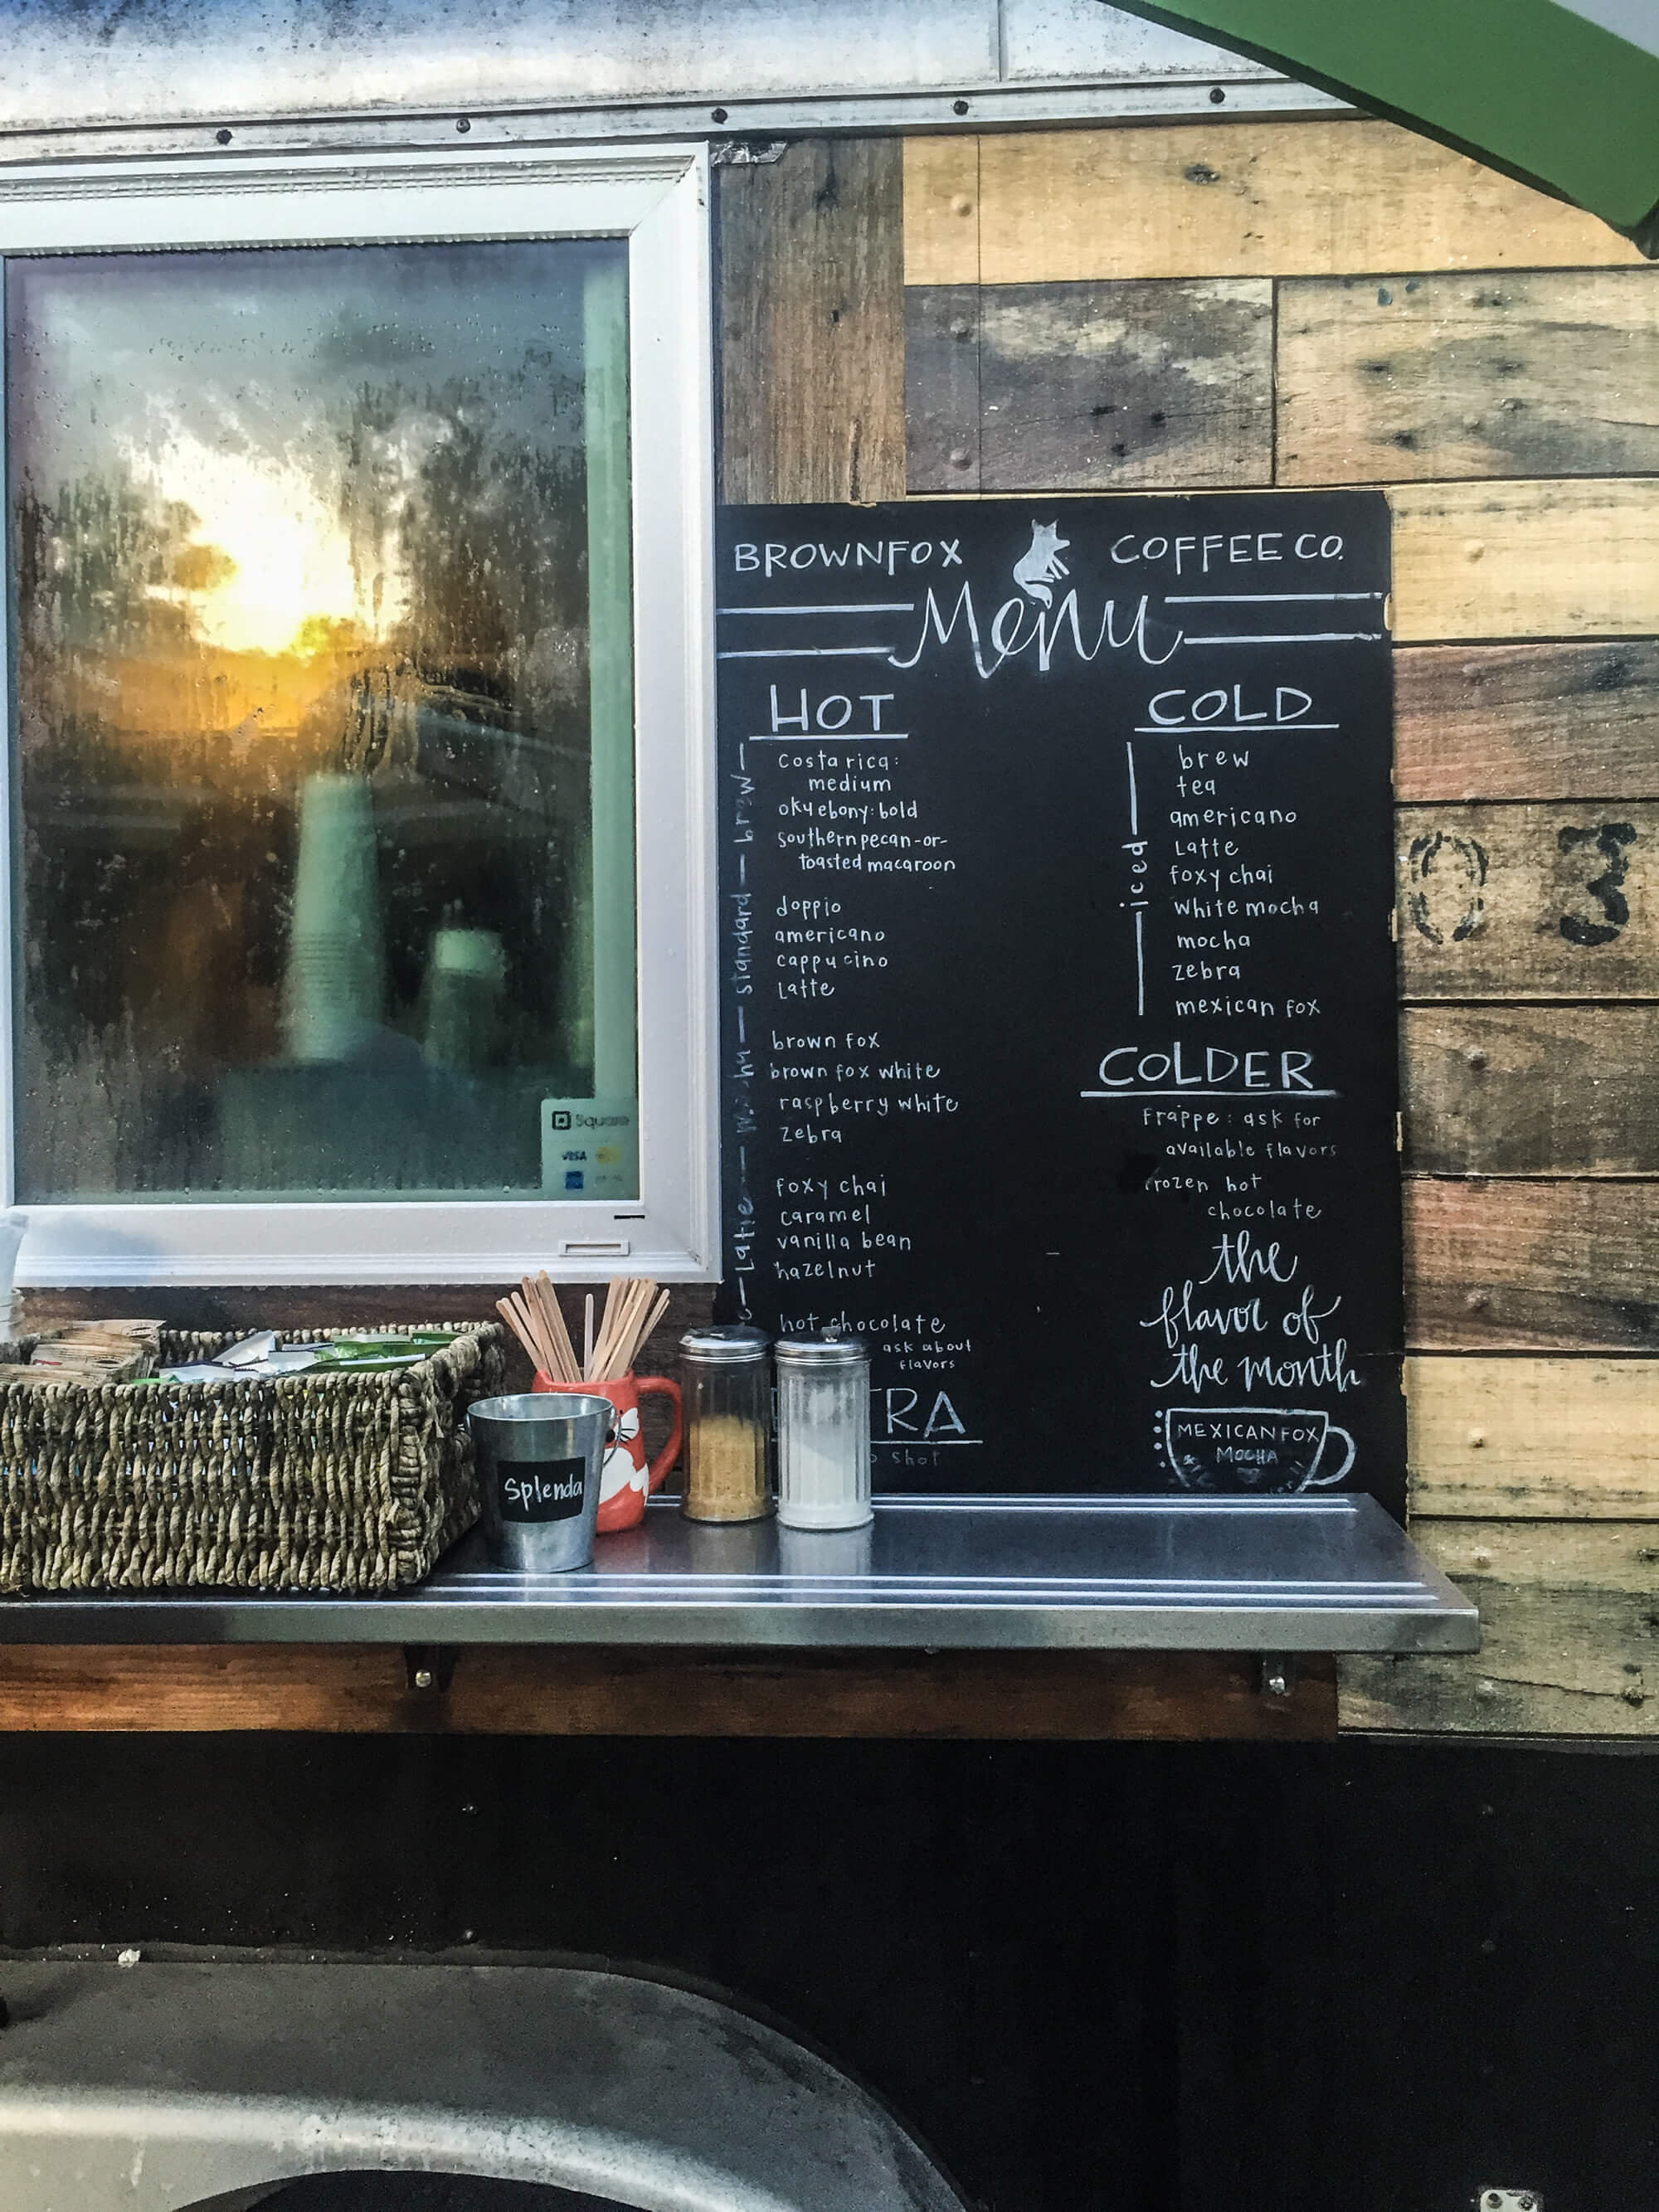 BROWNFOX COFFEE CO.
Menu
HOT
brew
Costa rica:
medium
oky ebony: bold
southern pecan -or-
toasted macaroon
standard
doppio
americano
cappucino
Latte
brown fox
brown fox white
raspberry white
zebra
Latte
foxy chai
caramel
vanilla bean
hazelnut
hot chocolate
ask about
flavors
shot
COLD
iced
brew
tea
americano
Latte
foxy chai
white mocha
mocha
zebra
mexican fox
COLDER
Frappe: ask for
available flavors
frozen hot
chocolate
the
flavor of
the month
MEXICAN FOX
MOCHA
0 3
Square
VISA
Splenda